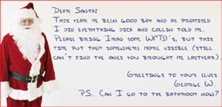 Dear Santa:
This year me been good boy and as promised
I did everything Dick and Colleg told me.
Please bring I had some WMD's, but this
time put them somewhere more visible (still
can't find the ones you brought me last year).
Greetings to your elves
George W.
P.S. Can I go to the bathroom now?